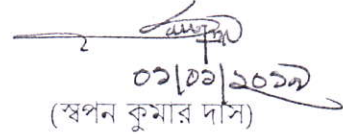 ০১/০১/২০১৯
(স্বপন কুমার দাস)